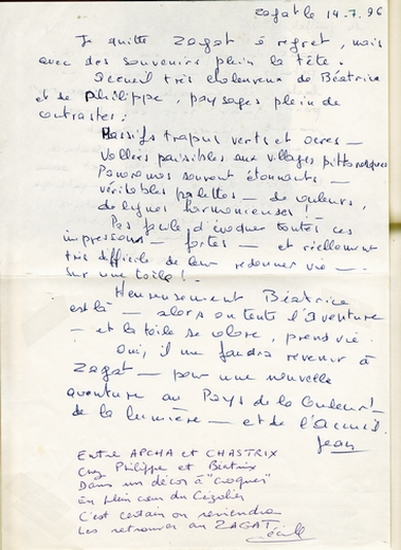 Zagat le 14.7.96
Je quitte Zagat à regret, mais
avec des souvenirs plein la tête.
Accueil très chaleureux de Béatrice
et de Philippe, paysages plein de
contrastes:
Massifs trapus verts et ocres —
Vallées paisibles aux villages pittoresques
Panoramas souvent étonnants —
véritables palettes — de couleurs,
de lignes harmonieuses!
Pas facile d'évoquer toutes ces
impressions — fortes — et réellement
très difficile de leur redonner vie —
sur une toile!
Heureusement Béatrice
est là — alors on tente l'aventure
— et la toile se colore, prend vie.
Oui, il me faudra revenir à
Zagat — pour une nouvelle
aventure au Pays de la Couleur! —
de la lumière — et de l'accueil.
Jean
Entre APCHA et CHASTRIX
Chez Philippe et Béatrix
Dans un décor à "croquer"
En plein cœur du Cézallier
C'est certain on reviendra
Les retrouver au ZAGAT
Cécile